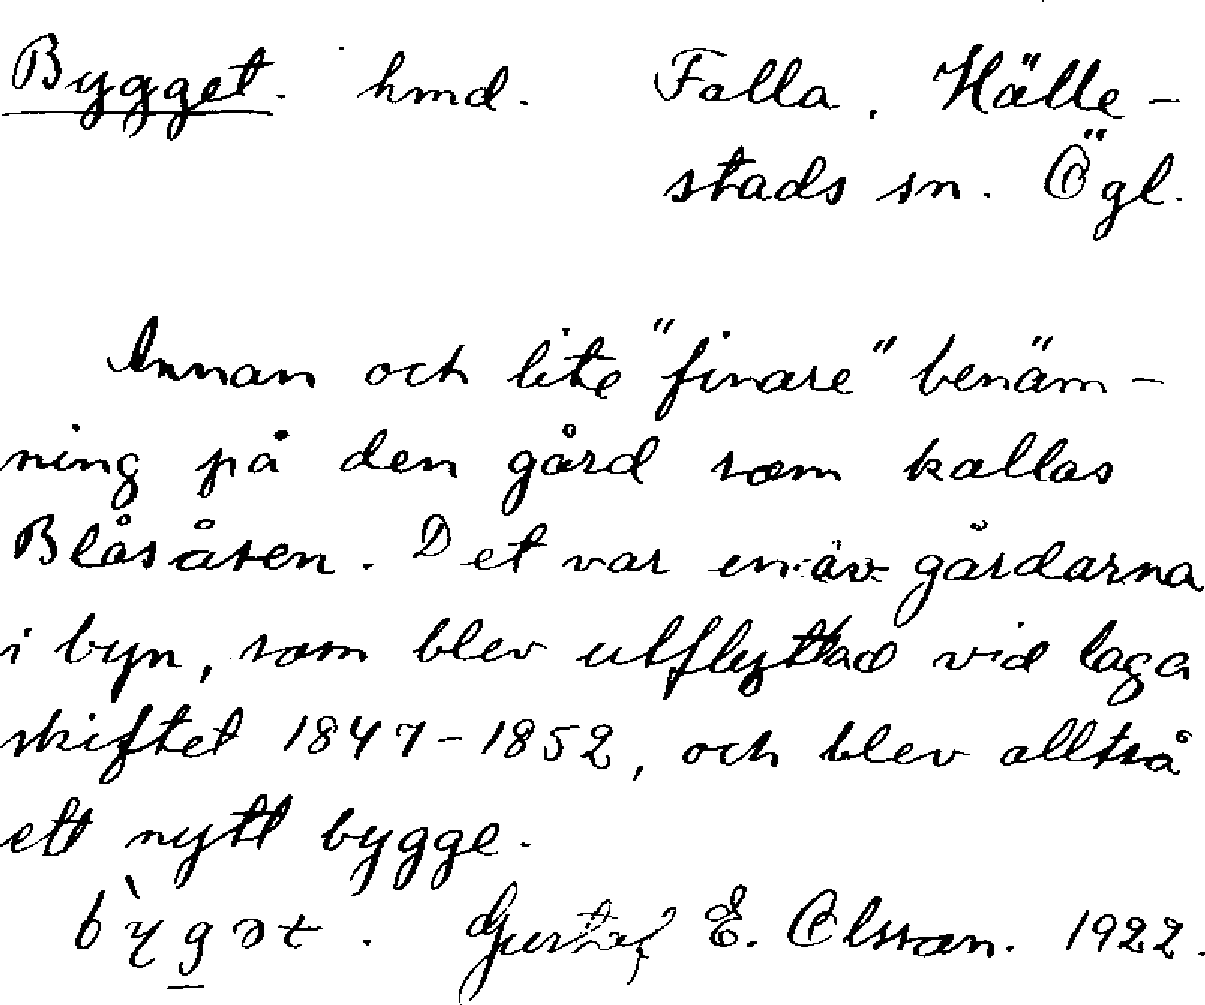 Bygget. hmd. Falla. Hälle-
stads sn. Ögl.
Annan och lite "finare" benäm-
ning på den gård som kallas
Blåsåsen. Det var en av gårdarna
i byn, som blev utflyttad vid laga
skiftet 1847-1852, och blev alltså
ett nytt bygge.
Gustaf E. Olsson. 1922.